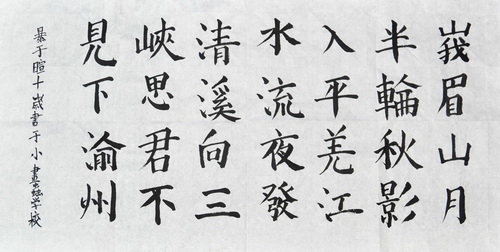 峩眉山月
半輪秋影
入平羌江
水流夜發
清溪向三
峽思君不
見下渝州
暴于暄十歲書于小畫紜学校